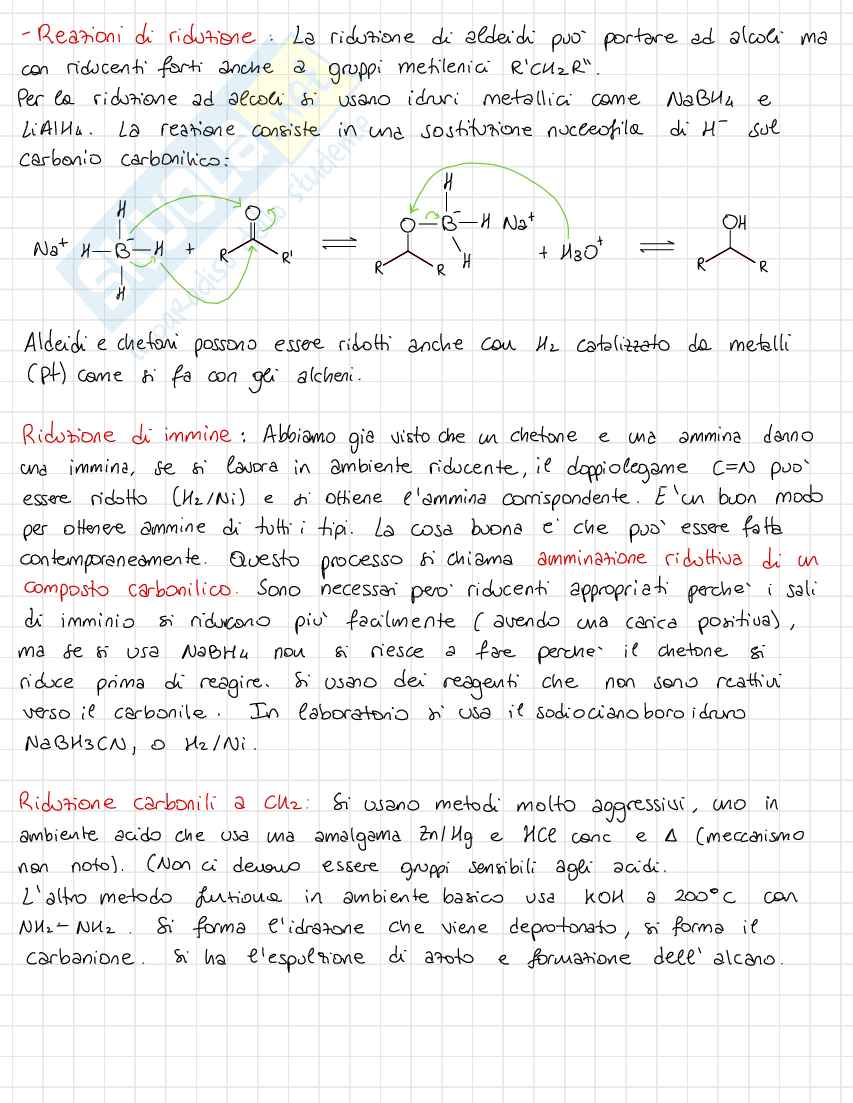 - Reazioni di riduzione : La riduzione di aldeidi può portare ad alcoli ma
con riducenti forti anche a gruppi metilenici R'CH2R".
Per la riduzione ad alcoli si usano idruri metallici come NaBH4 e
LiAlH4. La reazione consiste in una sostituzione nucleofila di H⁻ sul
carbonio carbonilico:
Na⁺ H—B⁻—H + R R' O ⇌ O—B⁻—H Na⁺ + H3O⁺ ⇌ OH
H H H H R R R R
Aldeidi e chetoni possono essere ridotti anche con H2 catalizzato da metalli
(Pt) come si fa con gli alcheni.
Riduzione di immine : Abbiamo già visto che un chetone e una ammina danno
una immina, se si lavora in ambiente riducente, il doppiolegame C=N può
essere ridotto (H2/Ni) e si ottiene l'ammina corrispondente. E' un buon modo
per ottenere ammine di tutti i tipi. La cosa buona è che può essere fatta
contemporaneamente. Questo processo si chiama amminazione riduttiva di un
composto carbonilico. Sono necessari però riducenti appropriati perchè i sali
di imminio si riducono più facilmente (avendo una carica positiva),
ma se si usa NaBH4 non si riesce a fare perchè il chetone si
riduce prima di reagire. Si usano dei reagenti che non sono reattivi
verso il carbonile. In laboratorio si usa il sodiocianoboroidruro
NaBH3CN, o H2/Ni.
Riduzione carbonili a CH2: Si usano metodi molto aggressivi, uno in
ambiente acido che usa una amalgama Zn/Hg e HCl conc e Δ (meccanismo
non noto). (Non ci devono essere gruppi sensibili agli acidi.
L'altro metodo funziona in ambiente basico usa KOH a 200°C con
NH2-NH2. Si forma l'idrazone che viene deprotonato, si forma il
carbanione. Si ha l'espulsione di azoto e formazione dell'alcano.